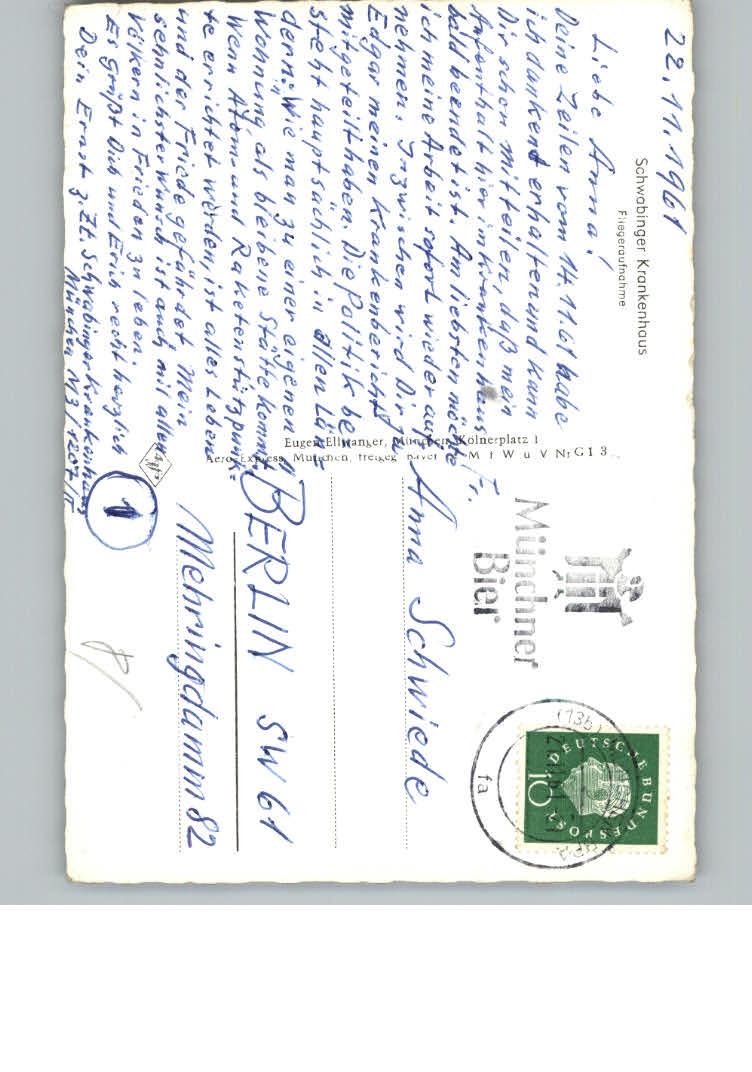 22.11.1961
Schwabinger Krankenhaus
Fliegeraufnahme
Liebe Anna!
Deine Zeilen vom 14.11.61 habe
ich dankend erhalten und kann
Dir schon mitteilen, daß mein
Aufenthalt hier im Krankenhaus
bald beendet ist. Am liebsten möchte
ich meine Arbeit sofort wieder auf=
nehmen. Inzwischen wird Dir ja
Edgar meinen Krankenbericht
mitgeteilt haben. Die Politik be=
steht hauptsächlich in allen Län=
dern: "Wie man zu einer eigenen
Wohnung als bleibene Stätte kommt"
Wenn Atom- und Raketenstützpunk=
te errichtet werden, ist alles Leben
und der Friede gefährdet. Mein
sehnlichster Wunsch ist auch mit allen
Völkern in Frieden zu leben.
Es grüßt Dich und Erich recht herzlich
Dein Ernst z. Zt. Schwabinger Krankenhaus
München
Eugen Ellwanger, München, Kölnerplatz 1
Aero-Express, München, freigeg. Bayer. St M f W u V Nr G 1 3
1
Münchner
Bier
(13b)
fa
DEUTSCHE BUNDESPOST
10
Fr.
Anna Schwiede
BERLIN SW 61
Mehringdamm 82